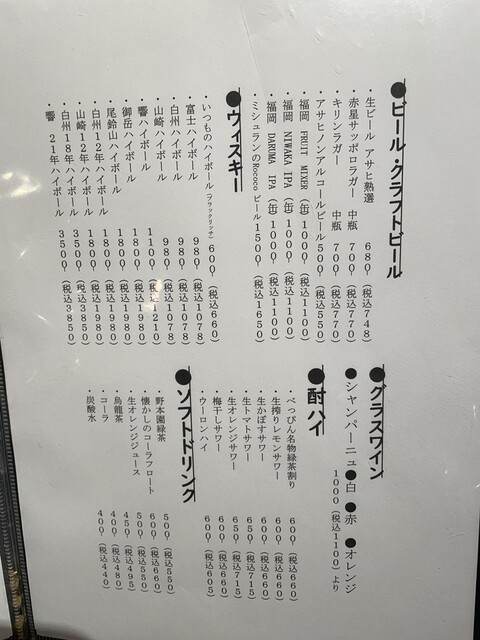 ●ビール・クラフトビール
・生ビール アサヒ熟選 680/(税込748)
・赤星サッポロラガー 中瓶 700/(税込770)
・キリンラガー 中瓶 700/(税込770)
・アサヒノンアルコールビール500/(税込550)
・福岡 FRUIT MIXER (缶)1000/(税込1100)
・福岡 NIWAKA IPA (缶)1000/(税込1100)
・福岡 DARUMA IPA (缶)1000/(税込1100)
・ミシュランのRococoビール1500/(税込1650)
●ウィスキー
・いつものハイボール(ブラックリッチ) 600/(税込660)
・富士ハイボール 980/(税込1078)
・白州ハイボール 980/(税込1078)
・山崎ハイボール 980/(税込1078)
・響ハイボール 1100/(税込1210)
・御岳ハイボール 1800/(税込1980)
・尾鈴山ハイボール 1800/(税込1980)
・白州12年ハイボール 1800/(税込1980)
・山崎12年ハイボール 1800/(税込1980)
・白州18年ハイボール 3500/(税込3850)
・響 21年ハイボール 3500/(税込3850)
●グラスワイン
●シャンパーニュ●白 ●赤 ●オレンジ
1000/(税込1100)より
●酎ハイ
・べっぴん名物緑茶割り 600/(税込660)
・生搾りレモンサワー 600/(税込660)
・生かぼすサワー 600/(税込660)
・生トマトサワー 650/(税込715)
・生オレンジサワー 650/(税込715)
・梅干しサワー 600/(税込660)
・ウーロンハイ 600/(税込605)
●ソフトドリンク
・野本園緑茶 500/(税込550)
・懐かしのコーラフロート 600/(税込660)
・生オレンジジュース 500/(税込550)
・烏龍茶 450/(税込495)
・コーラ 400/(税込480)
・炭酸水 400/(税込440)